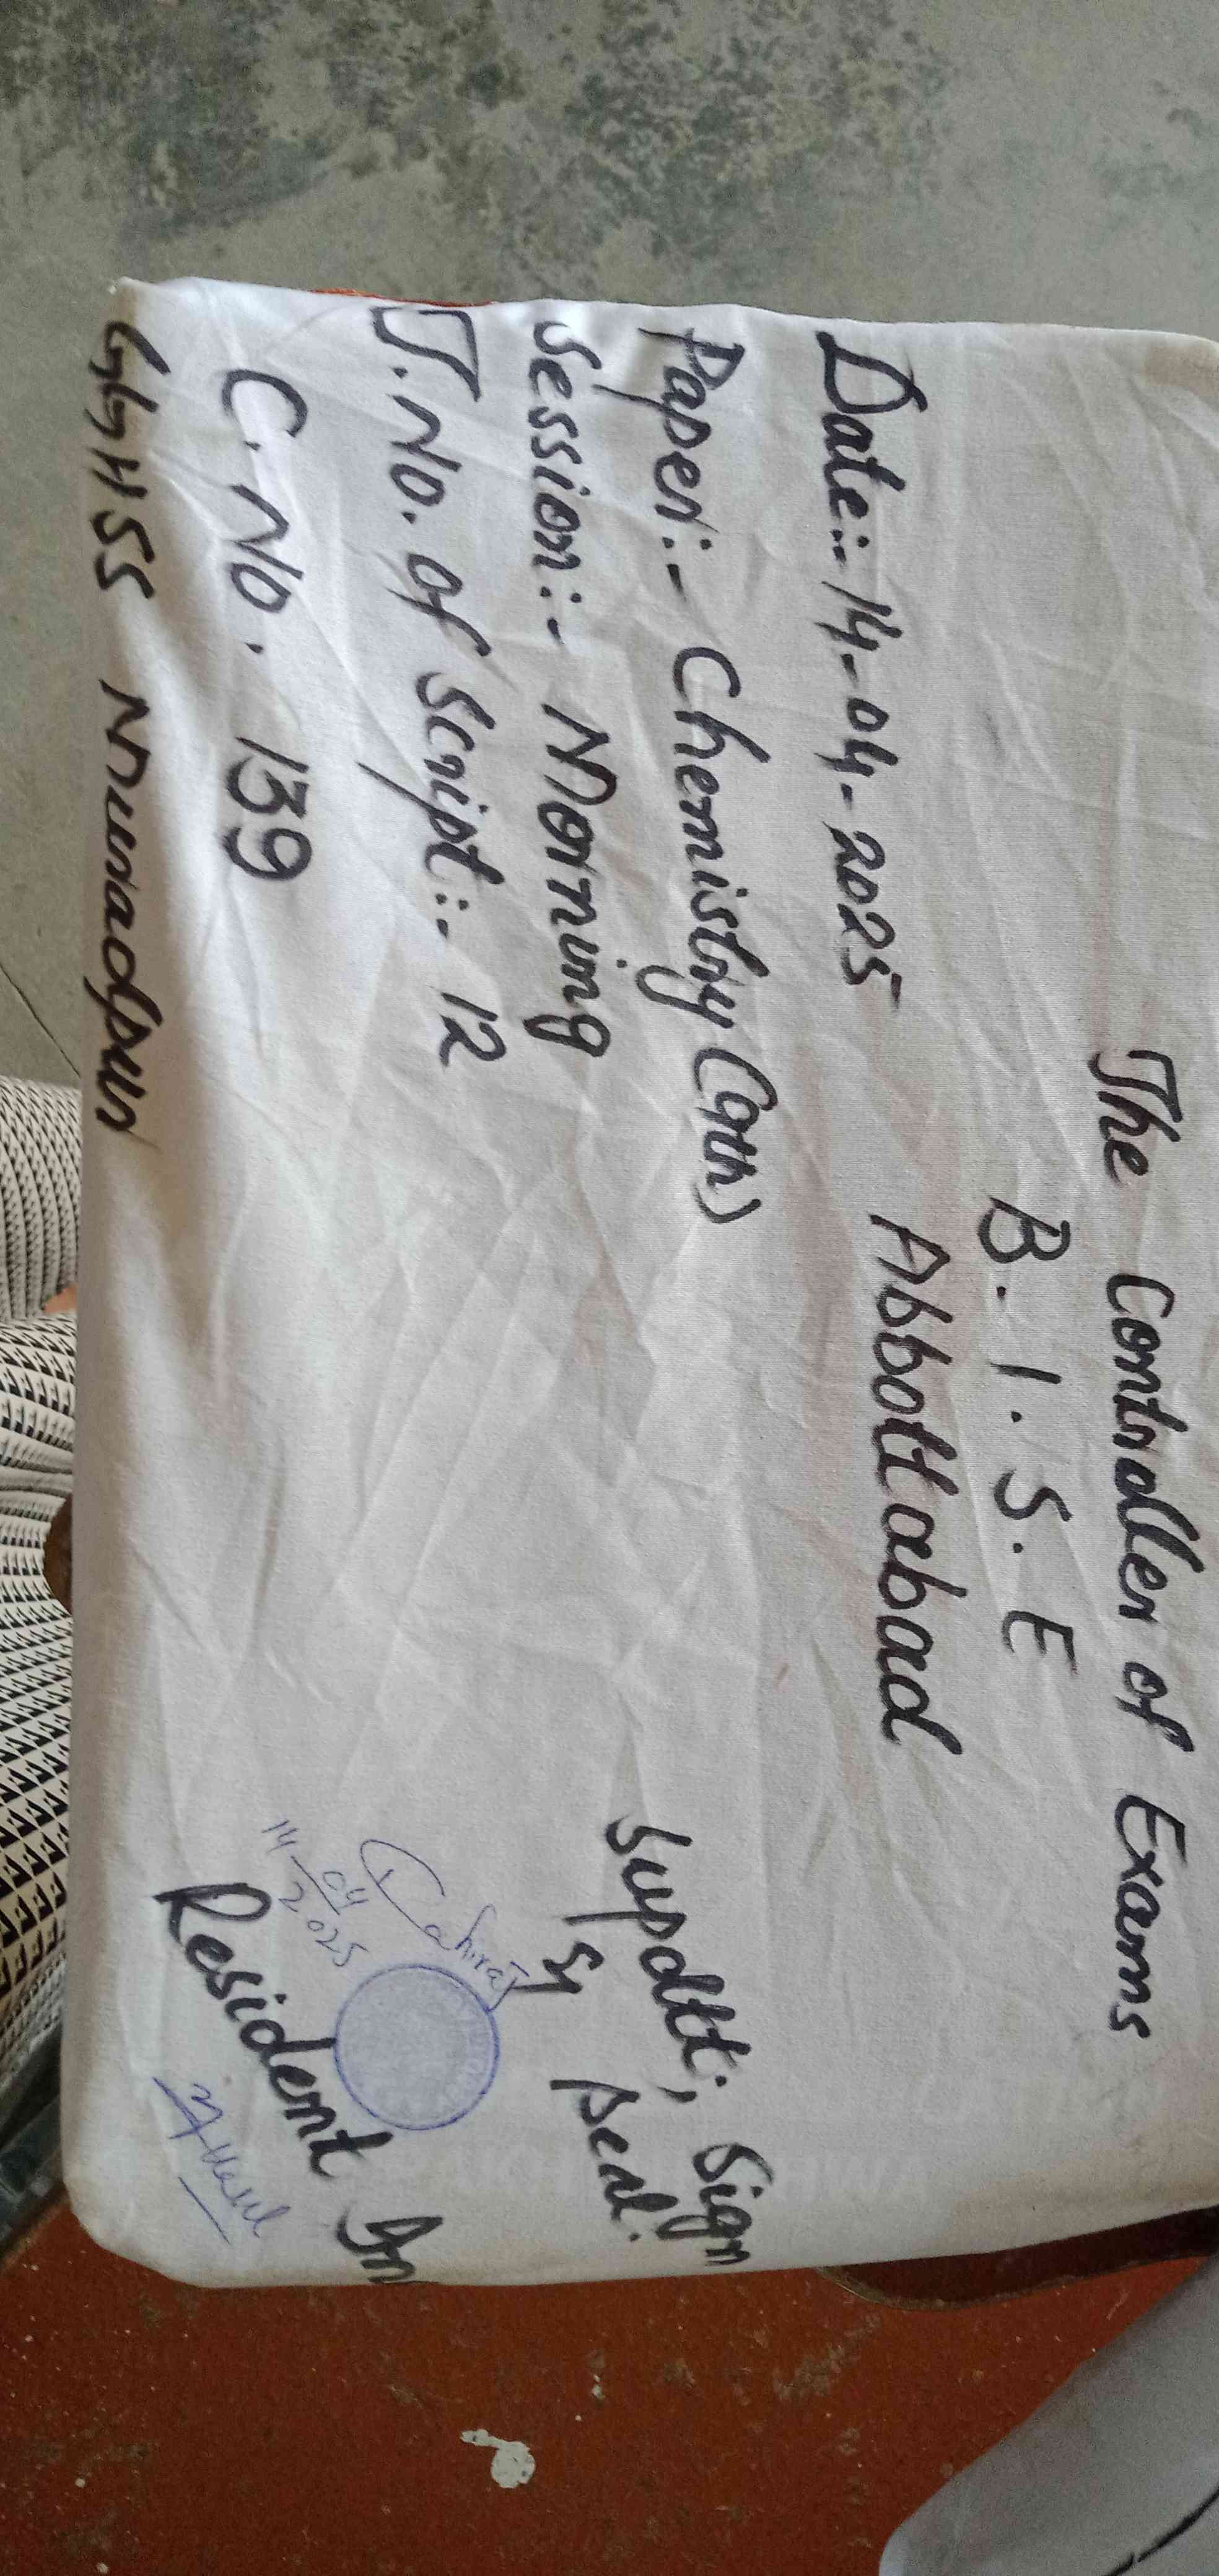 The Controller of Exams
B.I.S.E
Abbottabad
Date:- 14-04-2025
Paper:- Chemistry (9th)
Session:- Morning
T.No. of Script:- 12
C.No. 139
GGHSS Muradpur
Supdtt; Sign
& Seal:
14-04-2025
Resident In